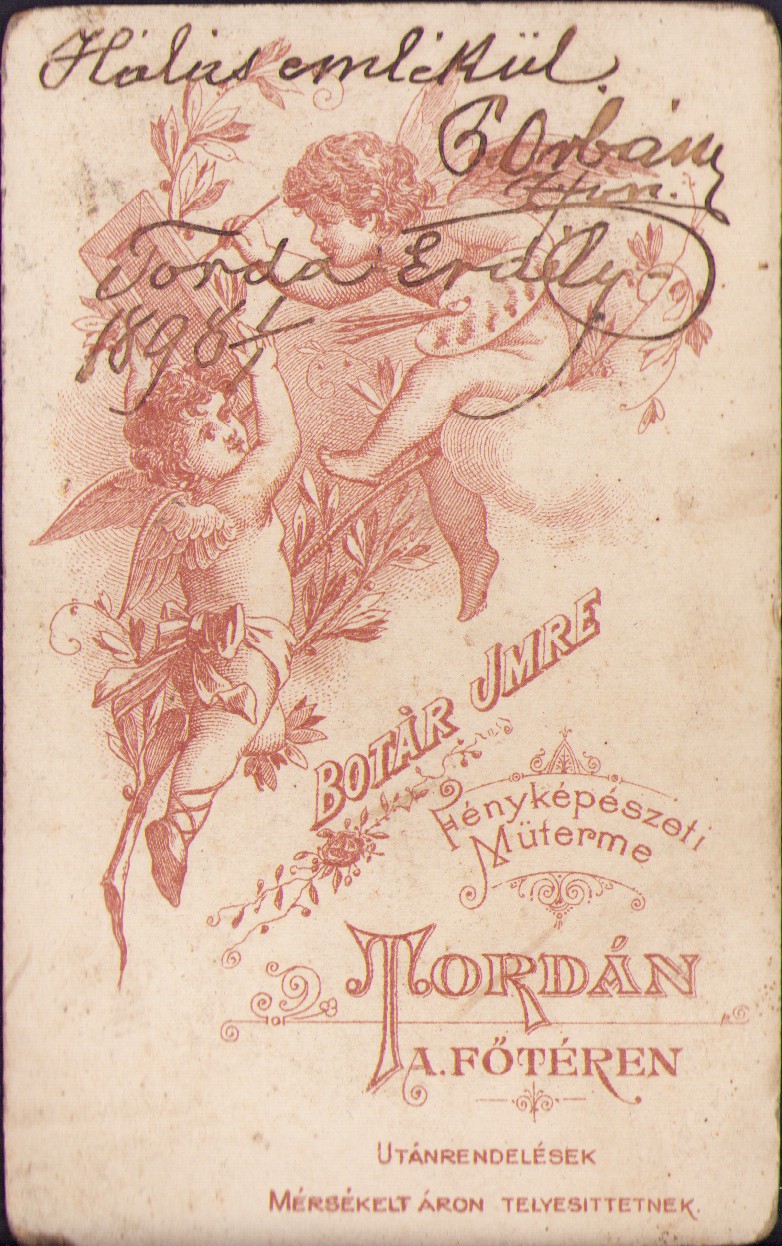 Hálás emlékül.
Orbán
Torda Erdély
1898
BOTÁR JMRE
Fényképészeti
Müterme
TORDÁN
A.FŐTÉREN
UTÁNRENDELÉSEK
MÉRSÉKELT ÁRON TELYESITTETNEK.